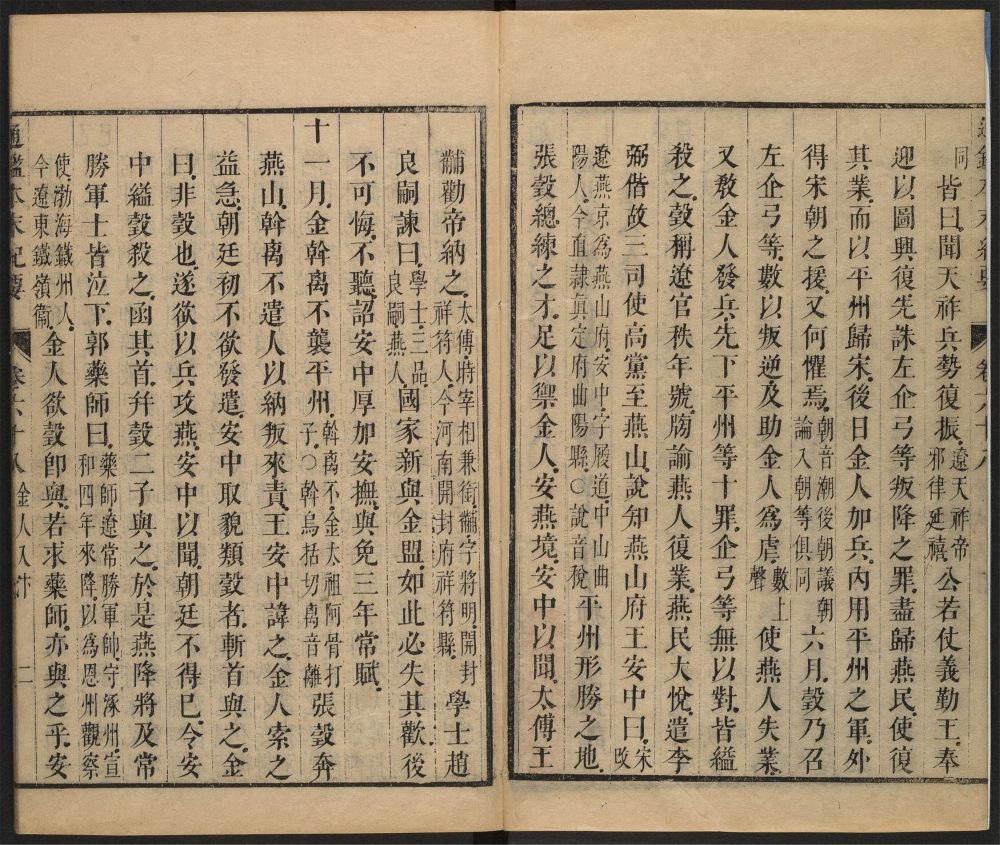 通鑑本末紀要 卷六十八
同 皆曰聞天祚兵勢復振遼天祚帝耶律延禧公若使義勤王奉
迎以圖興復先誅左企弓等叛降之罪盡歸燕民使復
其業而以平州歸宋後日金人加兵內用平州之軍外
得宋朝之援又何懼焉朝音潮後朝議朝論入朝等俱同六月瑴乃召
左企弓等數以叛逆及助金人爲虐數上聲使燕人失業
又敎金人發兵先下平州等十罪企弓等無以對皆縊
殺之瑴稱遼官秩年號牓諭燕人復業燕民大悅遣李
弼偕故三司使高黨至燕山說知燕山府王安中曰宋改
遼燕京爲燕山府安中字履道中山曲陽人今直隸眞定府曲陽縣○說音稅平州形勝之地
張瑴總練之才足以禦金人安燕境安中以聞太傅王
黼勸帝納之太傅時宰相兼銜黼字將明開封祥符人今河南開封府祥符縣學士趙
良嗣諫曰學士三品良嗣燕人國家新與金盟如此必失其歡後
不可悔不聽詔安中厚加安撫與免三年常賦
十一月金斡离不襲平州斡离不金太祖阿骨打子○斡烏括切离音離張瑴奔
燕山斡离不遣人以納叛來責王安中諱之金人索之
益急朝廷初不欲發遣安中取貌類瑴者斬首與之金
曰非瑴也遂欲以兵攻燕安中以聞朝廷不得已令安
中縊瑴殺之函其首幷瑴二子與之於是燕降將及常
勝軍士皆泣下郭藥師曰藥師遼常勝軍帥守涿州宣和四年來降以爲恩州觀察
使渤海鐵州人今遼東鐵嶺衞金人欲瑴卽與若求藥師亦與之乎安
通鑑本末紀要 卷六十八 金人入汴 二